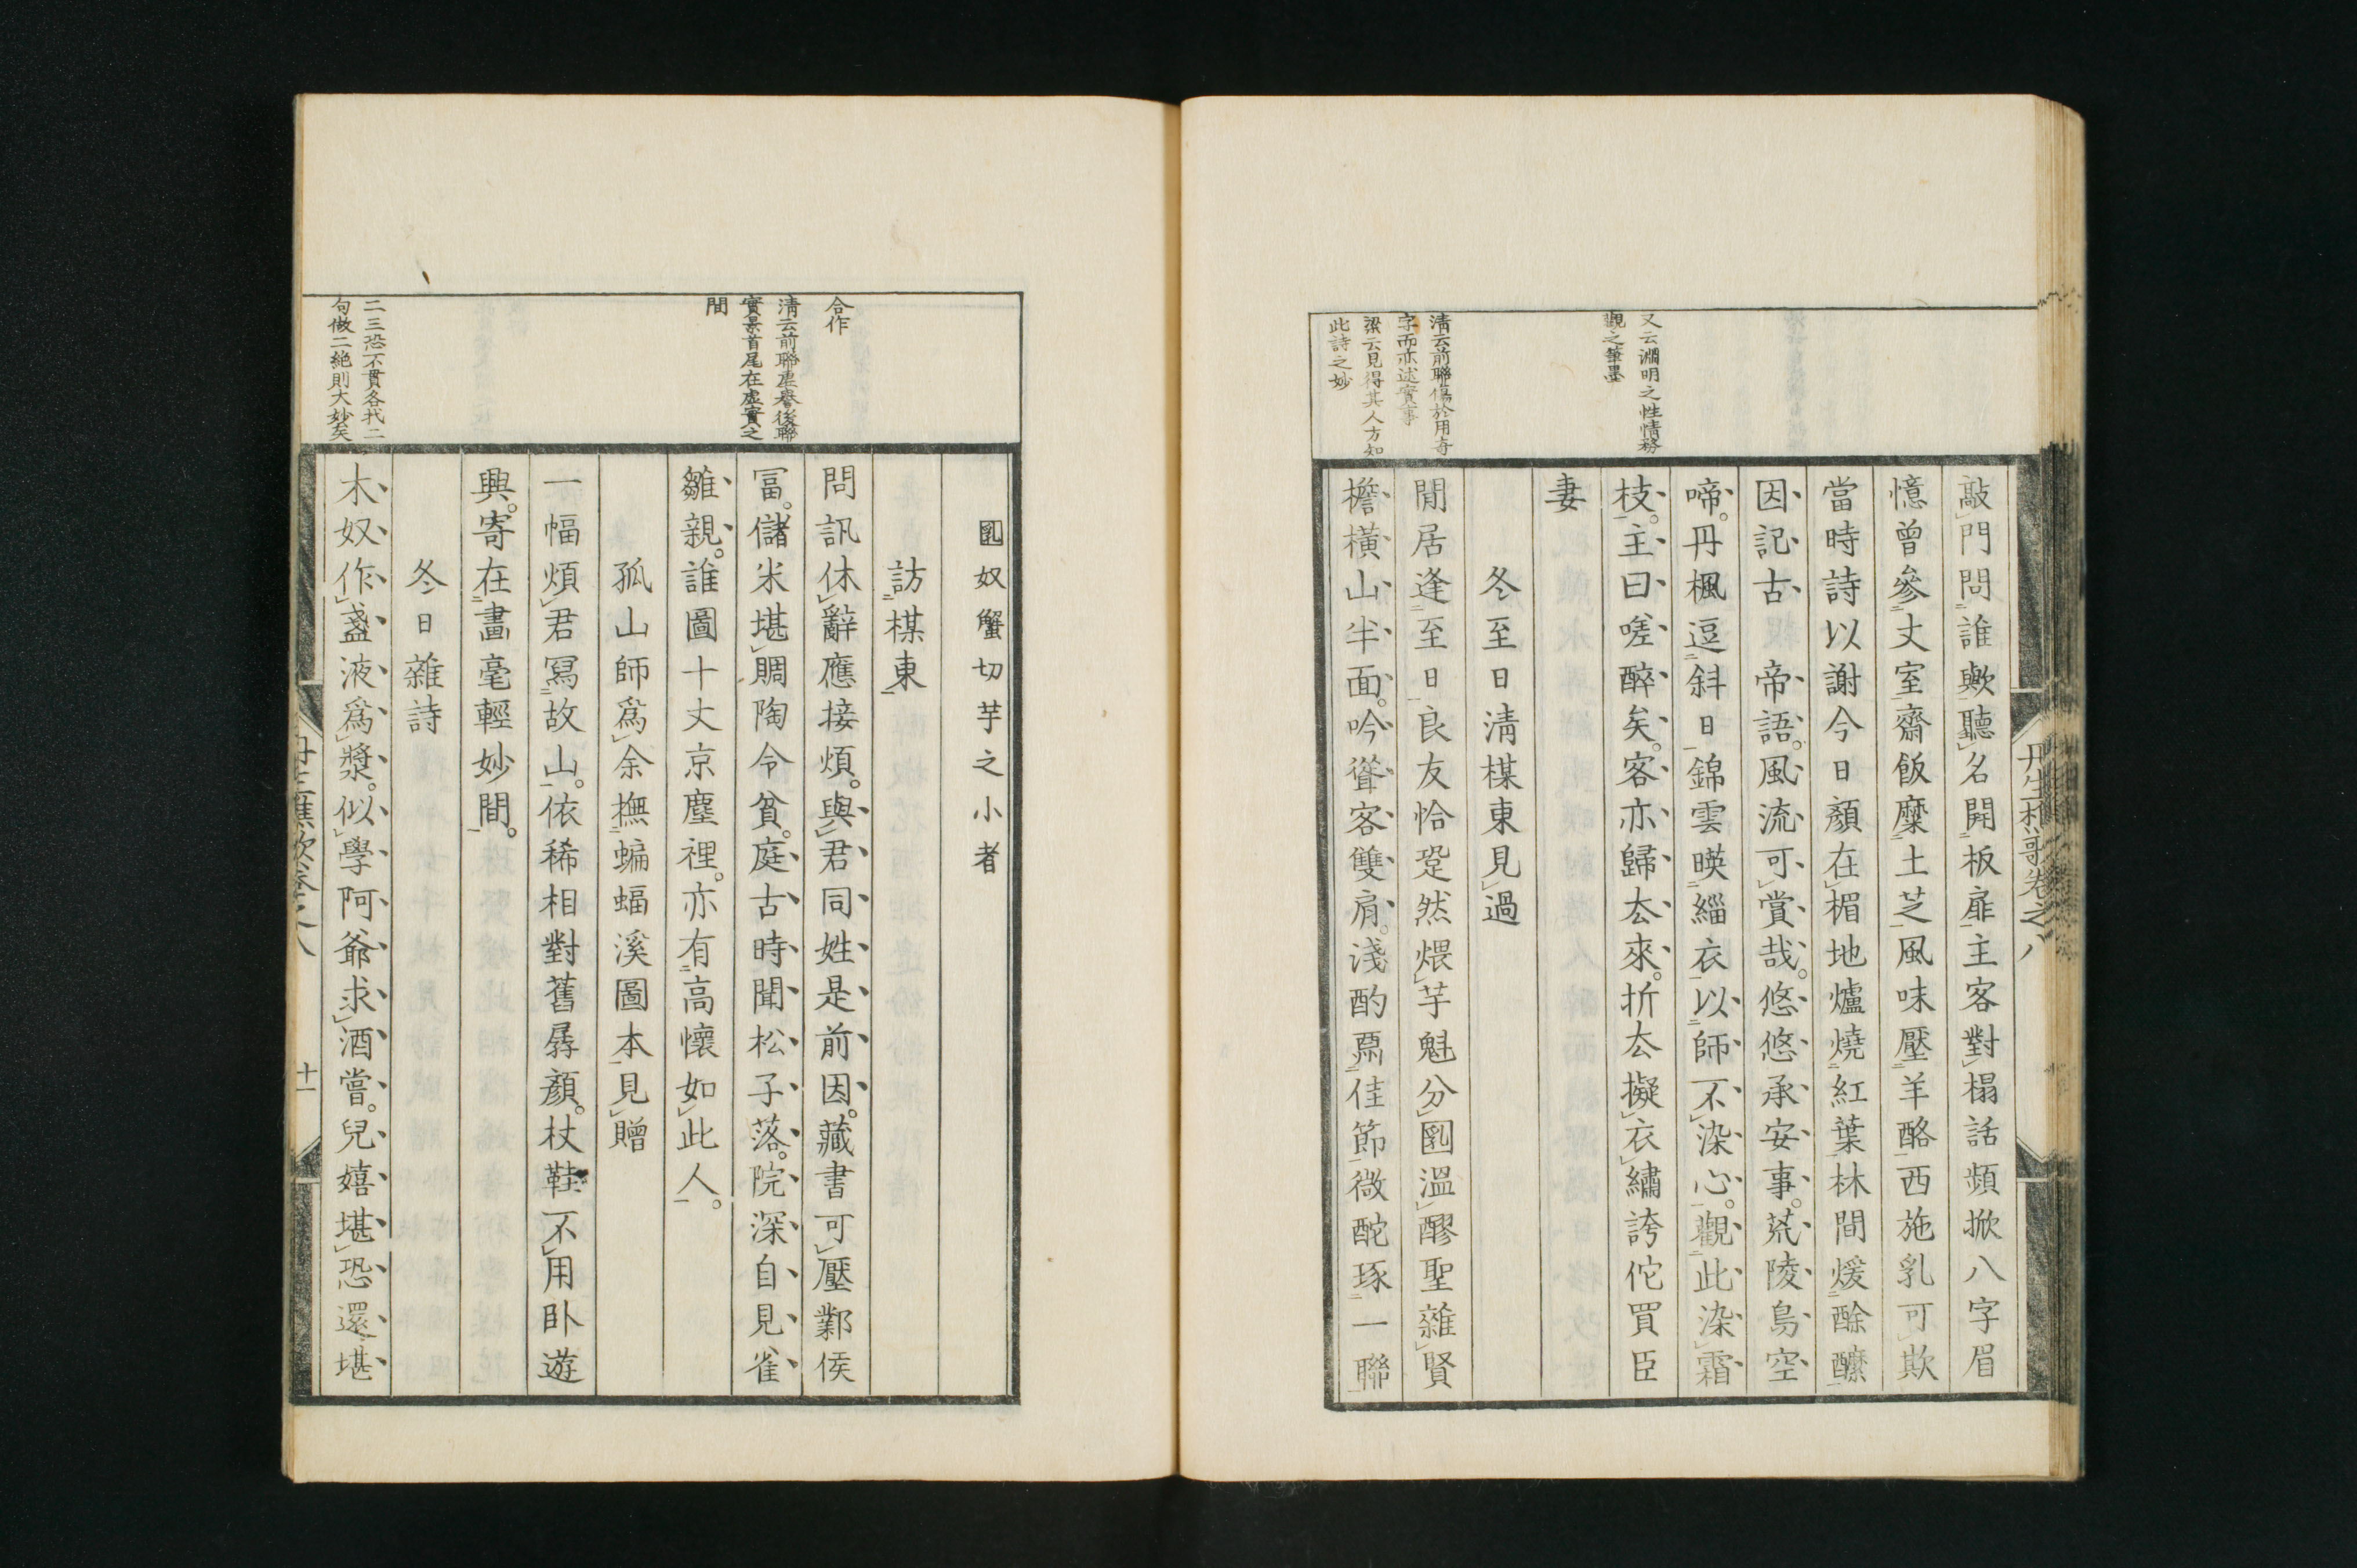 敲門問誰歟聽名開板扉主客對榻話頻掀八字眉
憶曾參丈室齋飯糜土芝風味壓羊酪西施乳可欺
當時詩以謝今日顏在楣地爐燒紅葉林間煖酴醾
因記古帝語風流可賞哉悠悠承安事荒陵鳥空
啼丹楓逗斜日錦雲暎緇衣以師不染心觀此染霜
枝主曰嗟醉矣客亦歸去來折去擬衣繡誇佗買臣
妻
冬至日清楳東見過
閒居逢至日良友恰跫然煨芋魁分圞溫醪聖雜賢
檐橫山半面吟聳客雙肩淺酌爲佳節微酡琢一聯
又云淵明之性情務
觀之筆墨
清云前聯傷於用奇
字而亦述實事
梁云見得其人方知
此詩之妙
丹生樵歌卷之八
奴蟹切芋之小者
訪楳東
問訊休辭應接煩與君同姓是前因藏書可壓鄴侯
富儲米堪賙陶令貧庭古時聞松子落院深自見雀
雛親誰圖十丈京塵裡亦有高懷如此人
孤山師爲余撫蝙蝠溪圖本見贈
一幅煩君寫故山依稀相對舊孱顏杖鞋不用臥遊
興寄在畫毫輕妙間
冬日雜詩
木奴作盞液爲漿似學阿爺求酒嘗兒嬉堪恐還堪
合作
清云前聯虛譽後聯
實景首尾在虛實之
間
二三恐不貫各找二
句做二絕則大妙矣
丹生樵歌卷之八
十一